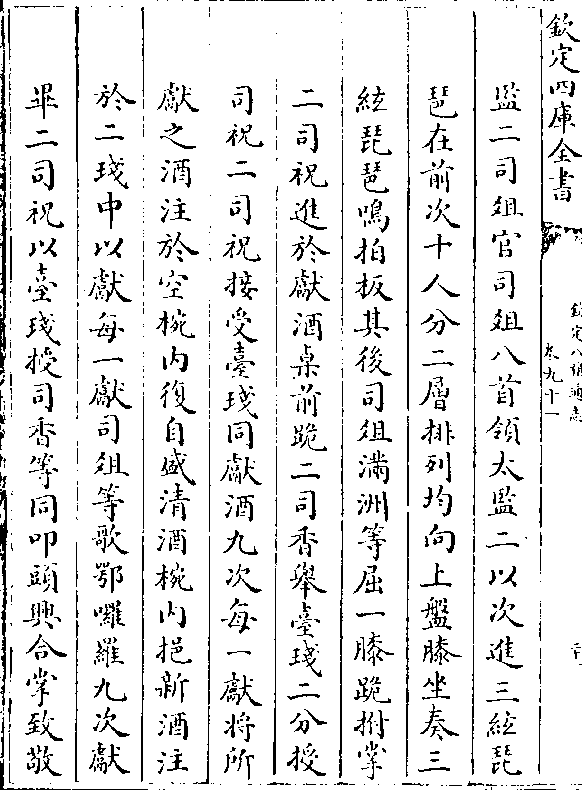 欽定四庫全書
欽定八旗通志
卷九十一
監二司俎官司俎八首領太監二以次進三絃琵
琶在前次十人分二層排列均向上盤膝坐奏三
絃琵琶鳴拍板其後司俎滿洲等屈一膝跪拊掌
二司祝進於獻酒桌前跪二司香舉臺琖二分授
司祝二司祝接受臺琖同獻酒九次每一獻將所
獻之酒注於空椀内復自盛清酒椀内挹新酒注
於二琖中以獻每一獻司俎等歌鄂囉羅九次獻
畢二司祝以臺琖授司香等同叩頭興合掌致敬